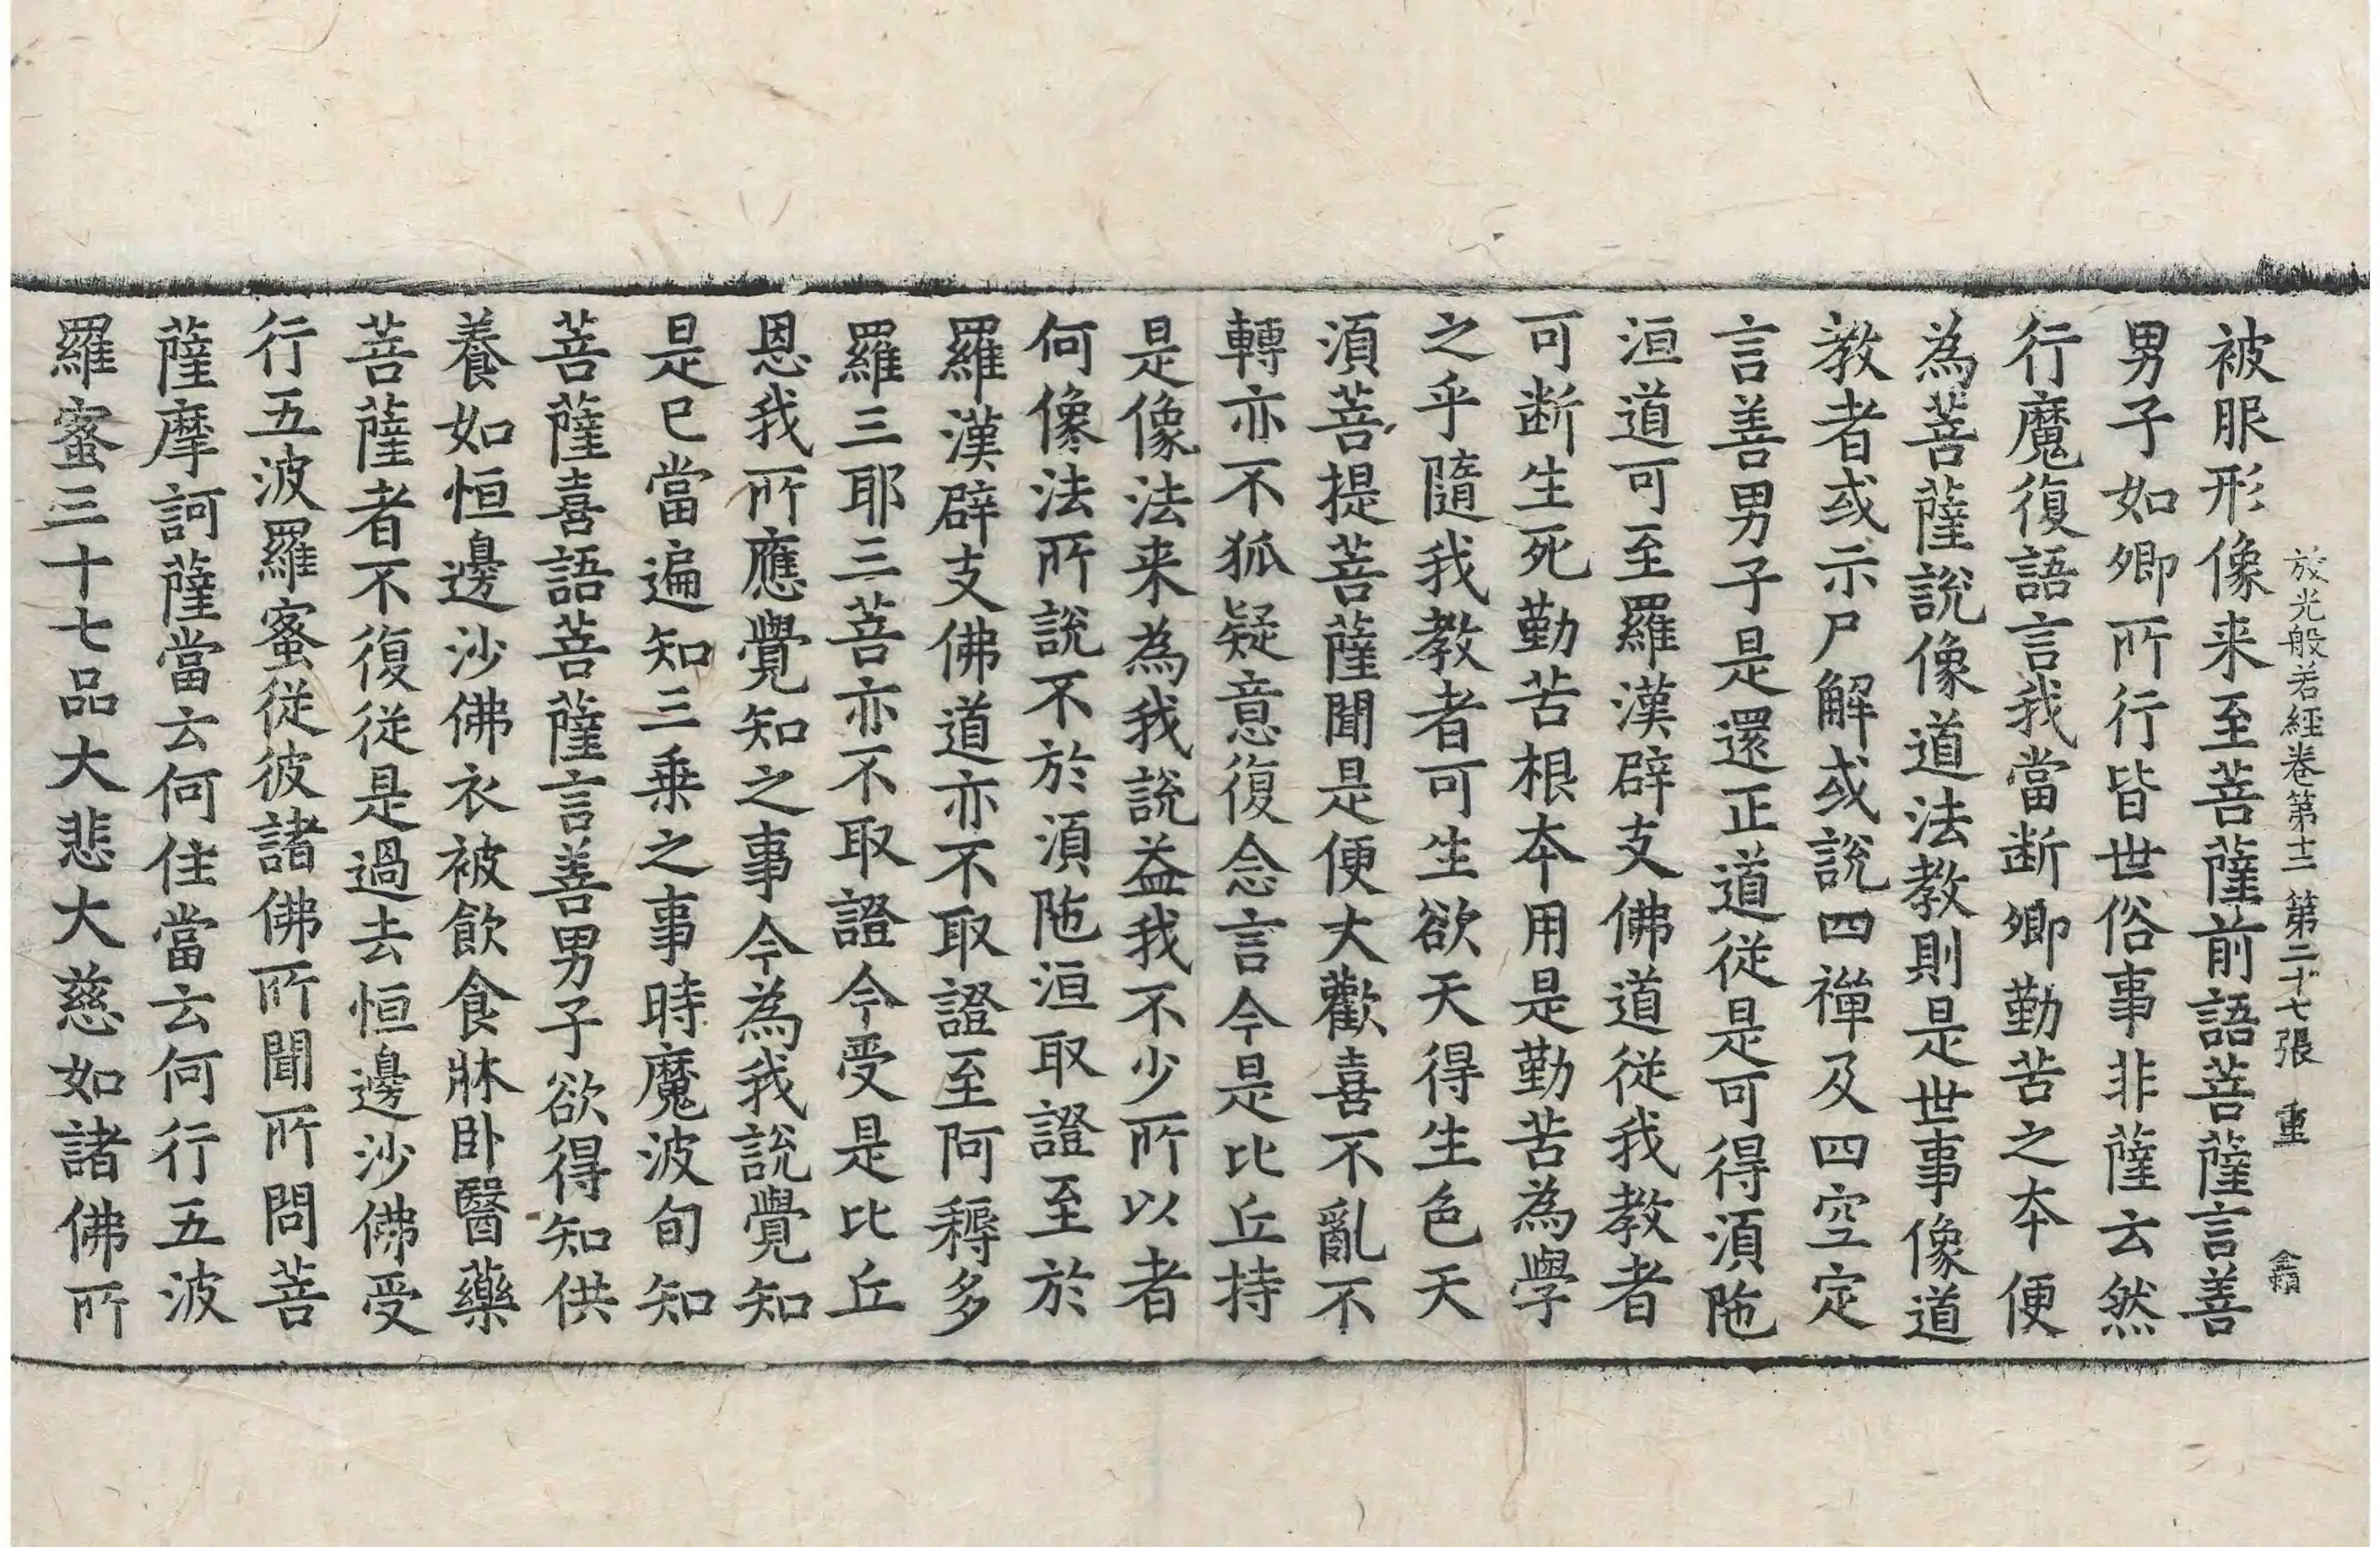 放光般若經卷第十二 第二十七張 重
被服形像来至菩薩前語菩薩言善
男子如卿所行皆世俗事非薩云然
行魔復語言我當断卿勤苦之本便
為菩薩說像道法教則是世事像道
教者或示尸解或說四禪及四空定
言善男子是還正道從是可得湏陁
洹道可至羅漢辟支佛道從我教者
可断生死勤苦根本用是勤苦為學
之乎隨我教者可生欲天得生色天
湏菩提菩薩聞是便大歡喜不亂不
轉亦不狐疑意復念言今是比丘持
是像法来為我說益我不少所以者
何像法所說不於湏陁洹取證至於
羅漢辟支佛道亦不取證至阿耨多
羅三耶三菩亦不取證今受是比丘
恩我所應覺知之事今為我說覺知
是已當遍知三乗之事時魔波旬知
菩薩喜語菩薩言善男子欲得知供
養如恒邊沙佛衣被飲食牀卧醫藥
菩薩者不復従是過去恒邊沙佛受
行五波羅蜜従彼諸佛所聞所問菩
薩摩訶薩當云何住當云何行五波
羅蜜三十七品大悲大慈如諸佛所